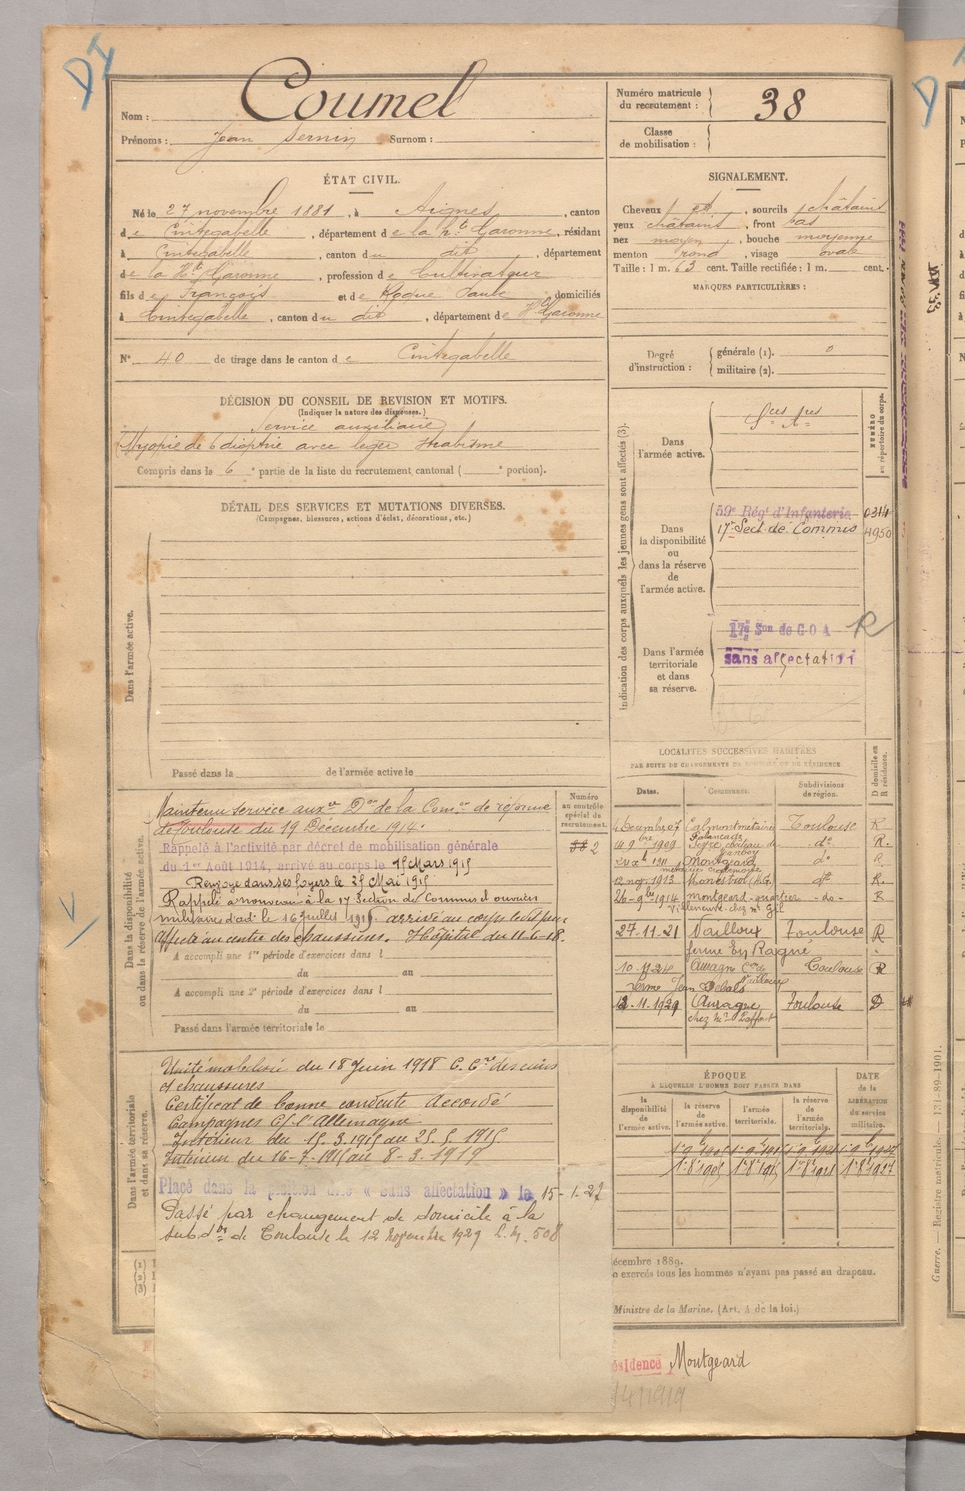 Nom : Coumel
Prénoms : Jean Sernin Surnom :
Numéro matricule du recrutement : 38
Classe de mobilisation :
ÉTAT CIVIL.
Né le 27 novembre 1881, à Aignes, canton
de Cintegabelle, département de la Hte Garonne, résidant
à Cintegabelle, canton du dit, département
de la Hte Garonne, profession de Cultivateur
fils de François et de domiciliés
à Cintegabelle, canton du dit, département de Hte Garonne
N° 40 de tirage dans le canton de Cintegabelle
SIGNALEMENT.
Cheveux et, sourcils châtains
yeux châtains, front bas
nez moyen, bouche moyenne
menton rond, visage ovale
Taille : 1 m. 63 cent. Taille rectifiée : 1 m. cent.
MARQUES PARTICULIÈRES :
Degré d'instruction : générale (1). 0
militaire (2).
DÉCISION DU CONSEIL DE REVISION ET MOTIFS.
(Indiquer la nature des dispenses.)
Service auxiliaire
Myopie de 6 dioptrie avec leger strabisme
Compris dans la 6e partie de la liste du recrutement cantonal ( e portion).
DÉTAIL DES SERVICES ET MUTATIONS DIVERSES.
(Campagnes, blessures, actions d'éclat, décorations, etc.)
Dans l'armée active.
Passé dans la de l'armée active le
Indication des corps auxquels les jeunes gens sont affectés (3).
NUMÉRO au répertoire du corps.
Dans l'armée active.
Dans la disponibilité ou dans la réserve de l'armée active.
59e Régt d'Infanterie 0314
17e Sect de Commis 4950
Dans l'armée territoriale et dans sa réserve.
17e Son de C O A R
sans affectation
Dans la disponibilité ou dans la réserve de l'armée active.
Numéro au contrôle spécial du recrutement.
Maintenu service auxre Don de la Comon de réforme
de Toulouse du 19 Décembre 1914.
Rappelé à l'activité par décret de mobilisation générale
du 1er Août 1914, arrivé au corps le 15 Mars 1915
Renvoyé dans ses foyers le 25 Mai 1915
Rappelé a nouveau à la 17 Section de Commis et ouvriers
militaires d'adon le 16 Juillet 1915. arrivé au corps le dit jour
Affecté au centre des chaussures. Hôpital du 11-6-18.
A accompli une 1re période d'exercices dans l
du au
A accompli une 2e période d'exercices dans l
du au
Passé dans l'armée territoriale le
LOCALITÉS SUCCESSIVES HABITÉES
PAR SUITE DE CHANGEMENTS DE DOMICILE OU DE RÉSIDENCE
Dates. Communes. Subdivisions de région. D domicile ou R résidence.
Calmont Toulouse R
1909 do R.
1911 Montgeard do R
1913 do R.
26-9bre 1914 montgeard do R
Villeneuve chez Mr Gil
27-11-21 Nailloux Toulouse R
ferme En Ragné
Auragne Toulouse R
12.11.1929 Auragne Toulouse D
chez Mr Laffont
Dans l'armée territoriale et dans sa réserve.
Unité mobilisée du 18 Juin 1918 C. Cre des cuirs
et chaussures
Certificat de bonne conduite Accordé
Campagnes C/ l'Allemagne
Intérieur du 15.3.1915 au 25.5.1915
Intérieur du 16-7-1915 au 8-3-1919
Placé dans la position dite « sans affectation » le 15-1-27
Passé par changement de domicile à la
subdon de Toulouse le 12 Novembre 1929 L.M. 508
ÉPOQUE
À LAQUELLE L'HOMME DOIT PASSER DANS
DATE de la LIBÉRATION du service militaire.
la disponibilité de l'armée active.
la réserve de l'armée active.
l'armée territoriale.
la réserve de l'armée territoriale.
écembre 1889.
e exercés tous les hommes n'ayant pas passé au drapeau.
Ministre de la Marine. (Art. 4 de la loi.)
ésidence Montgeard
/4/1919
Guerre. — Registre matricule. — 131-89-1901.